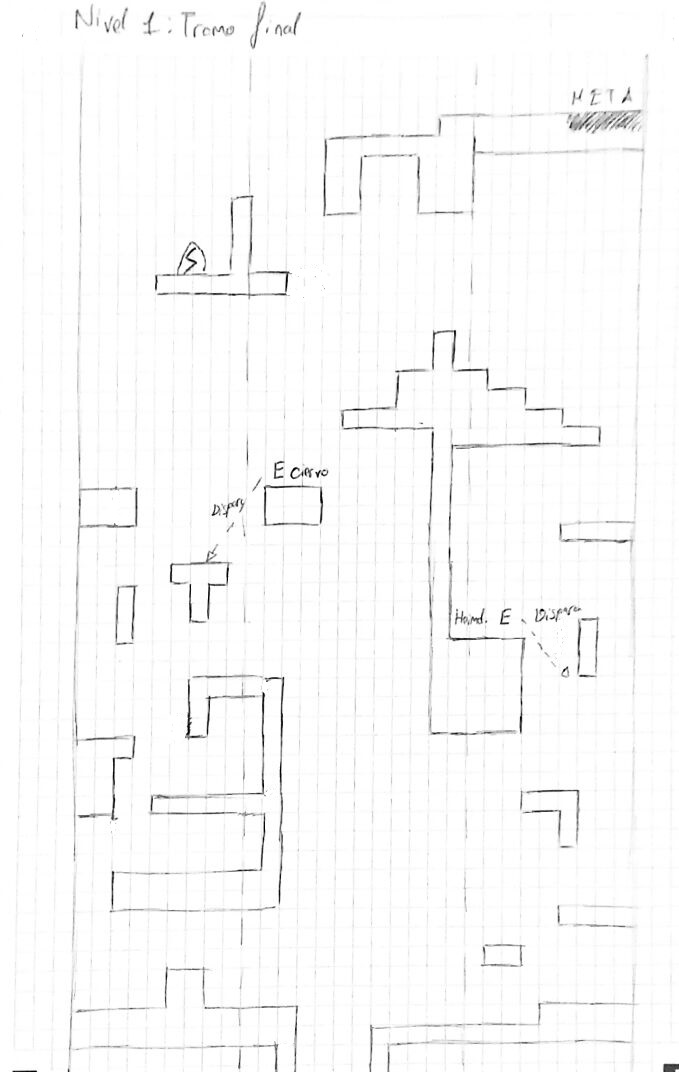 Nivel 1: Tramo final
META
S
E ciervo
Dispara
E
Dispara